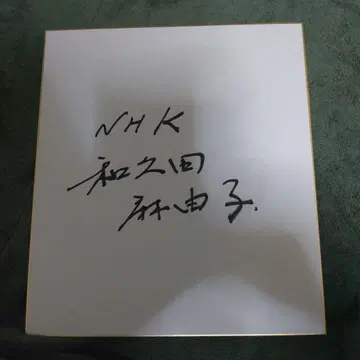 NHK
和久田
麻由子.